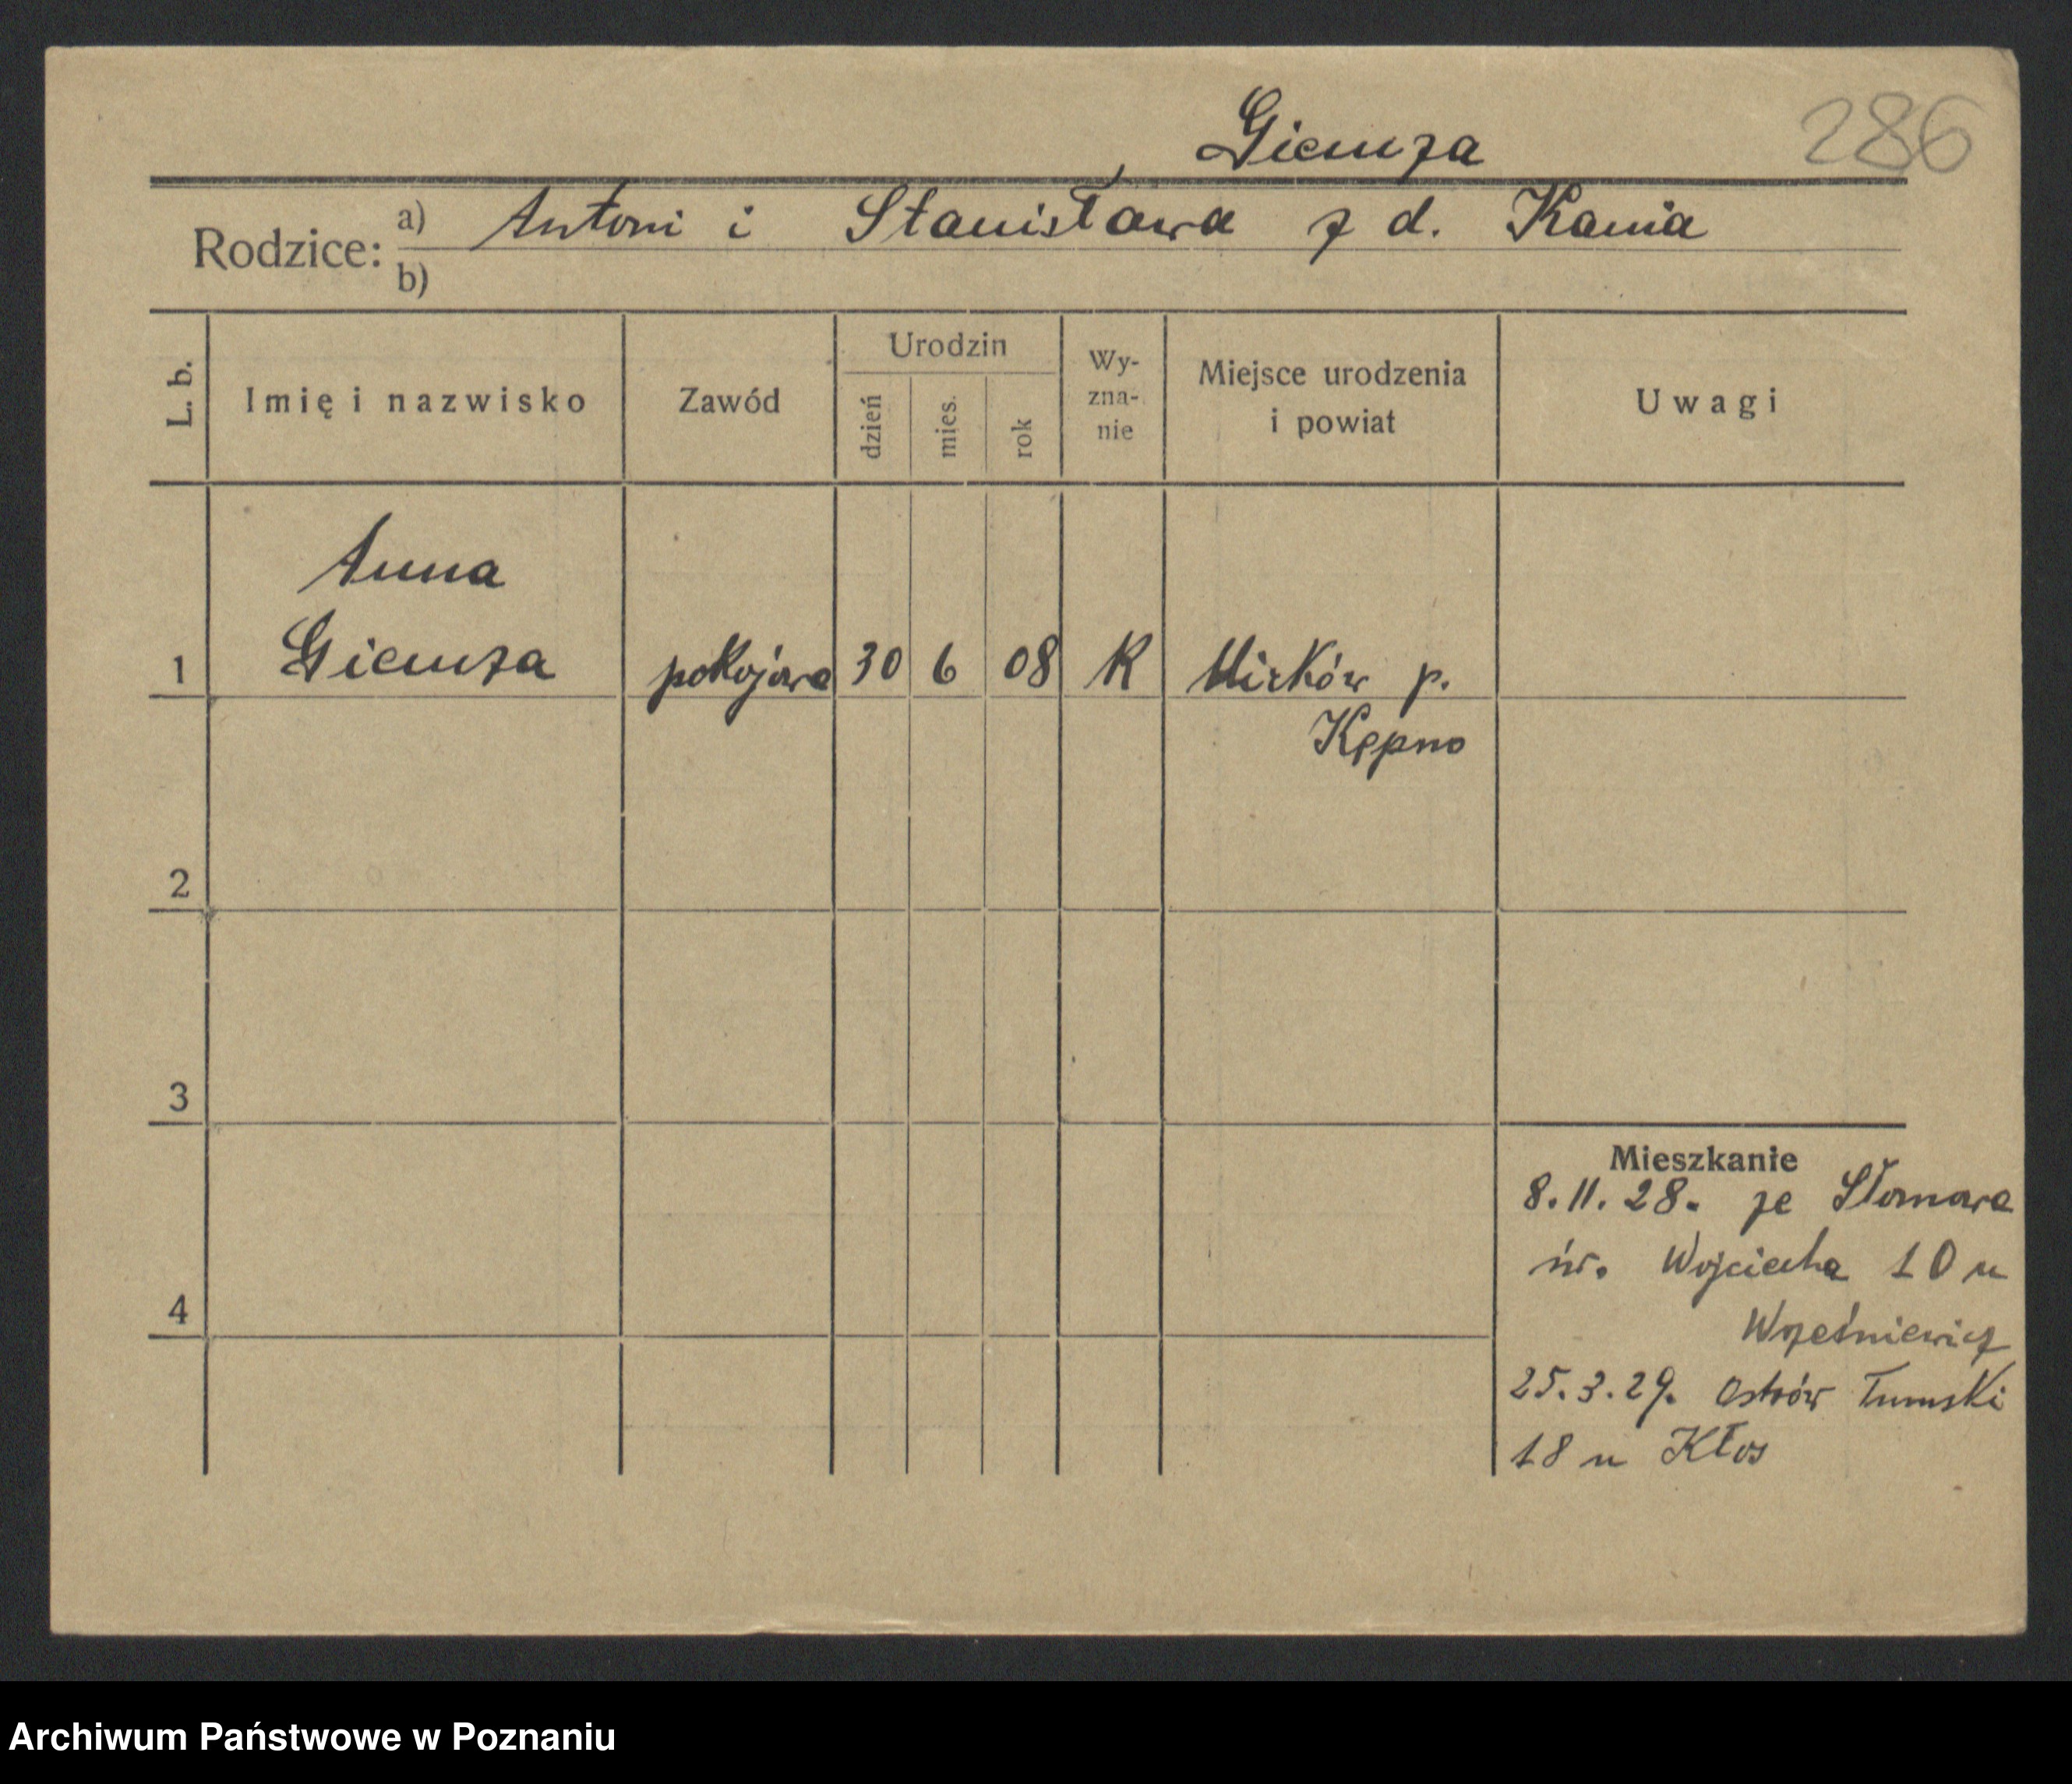 Giemza
286
Rodzice: a) Antoni i Stanisława z d. Kania
b)
L. b. Imię i nazwisko Zawód Urodzin dzień mies. rok Wy-zna-nie Miejsce urodzenia i powiat Uwagi
Anna
1 Giemza pokojowa 30 6 08 K Mirków p.
Kępno
2
3
Mieszkanie
8.11.28. ze Słomowa
św. Wojciecha 10 u
4
Wrześniewicz
25.3.29. Ostrów Tumski
18 u Kłos
Archiwum Państwowe w Poznaniu